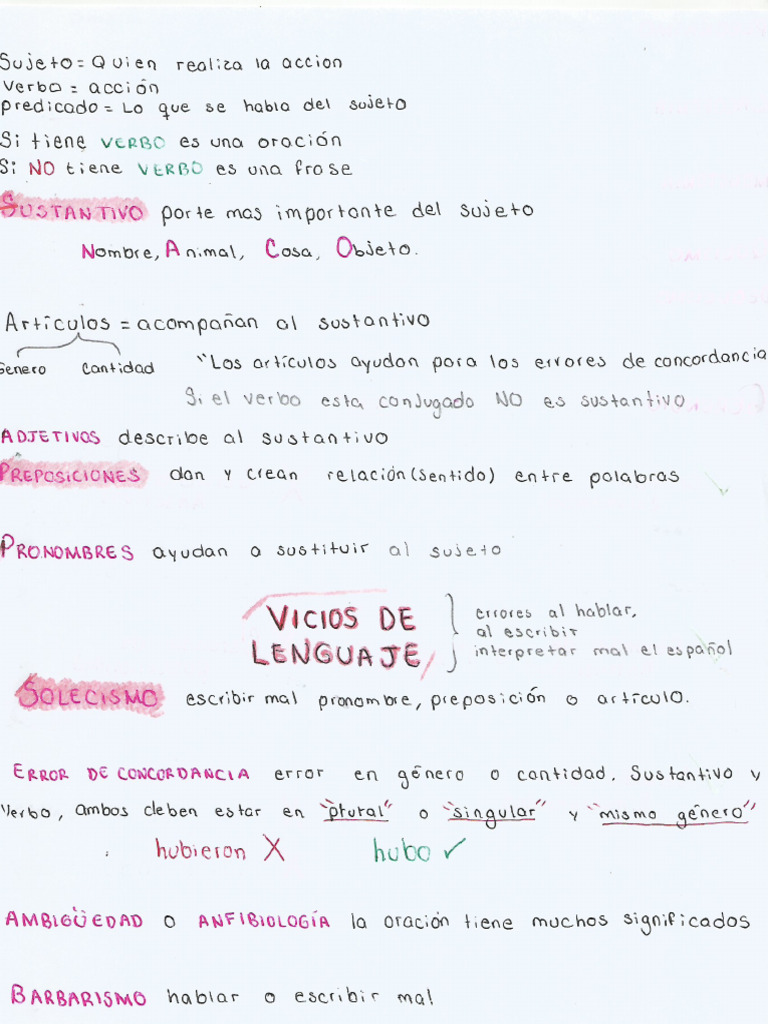 Sujeto = Quien realiza la accion
Verbo = acción
Predicado = Lo que se habla del sujeto
Si tiene VERBO es una oración
Si NO tiene VERBO es una frase
SUSTANTIVO parte mas importante del sujeto
Nombre, Animal, Cosa, Objeto.
Artículos = acompañan al sustantivo
Genero Cantidad "Los artículos ayudan para los errores de concordancia
Si el verbo esta conjugado NO es sustantivo.
ADJETIVOS describe al sustantivo
PREPOSICIONES dan y crean relación (sentido) entre palabras
PRONOMBRES ayudan a sustituir al sujeto
VICIOS DE LENGUAJE
errores al hablar,
al escribir
interpretar mal el español
SOLECISMO escribir mal pronombre, preposición o artículo.
ERROR DE CONCORDANCIA error en género o cantidad. Sustantivo y
Verbo, ambos deben estar en "plural" o "singular" y "mismo género"
hubieron X hubo ✓
AMBIGÜEDAD o ANFIBIOLOGÍA la oración tiene muchos significados
BARBARISMO hablar o escribir mal